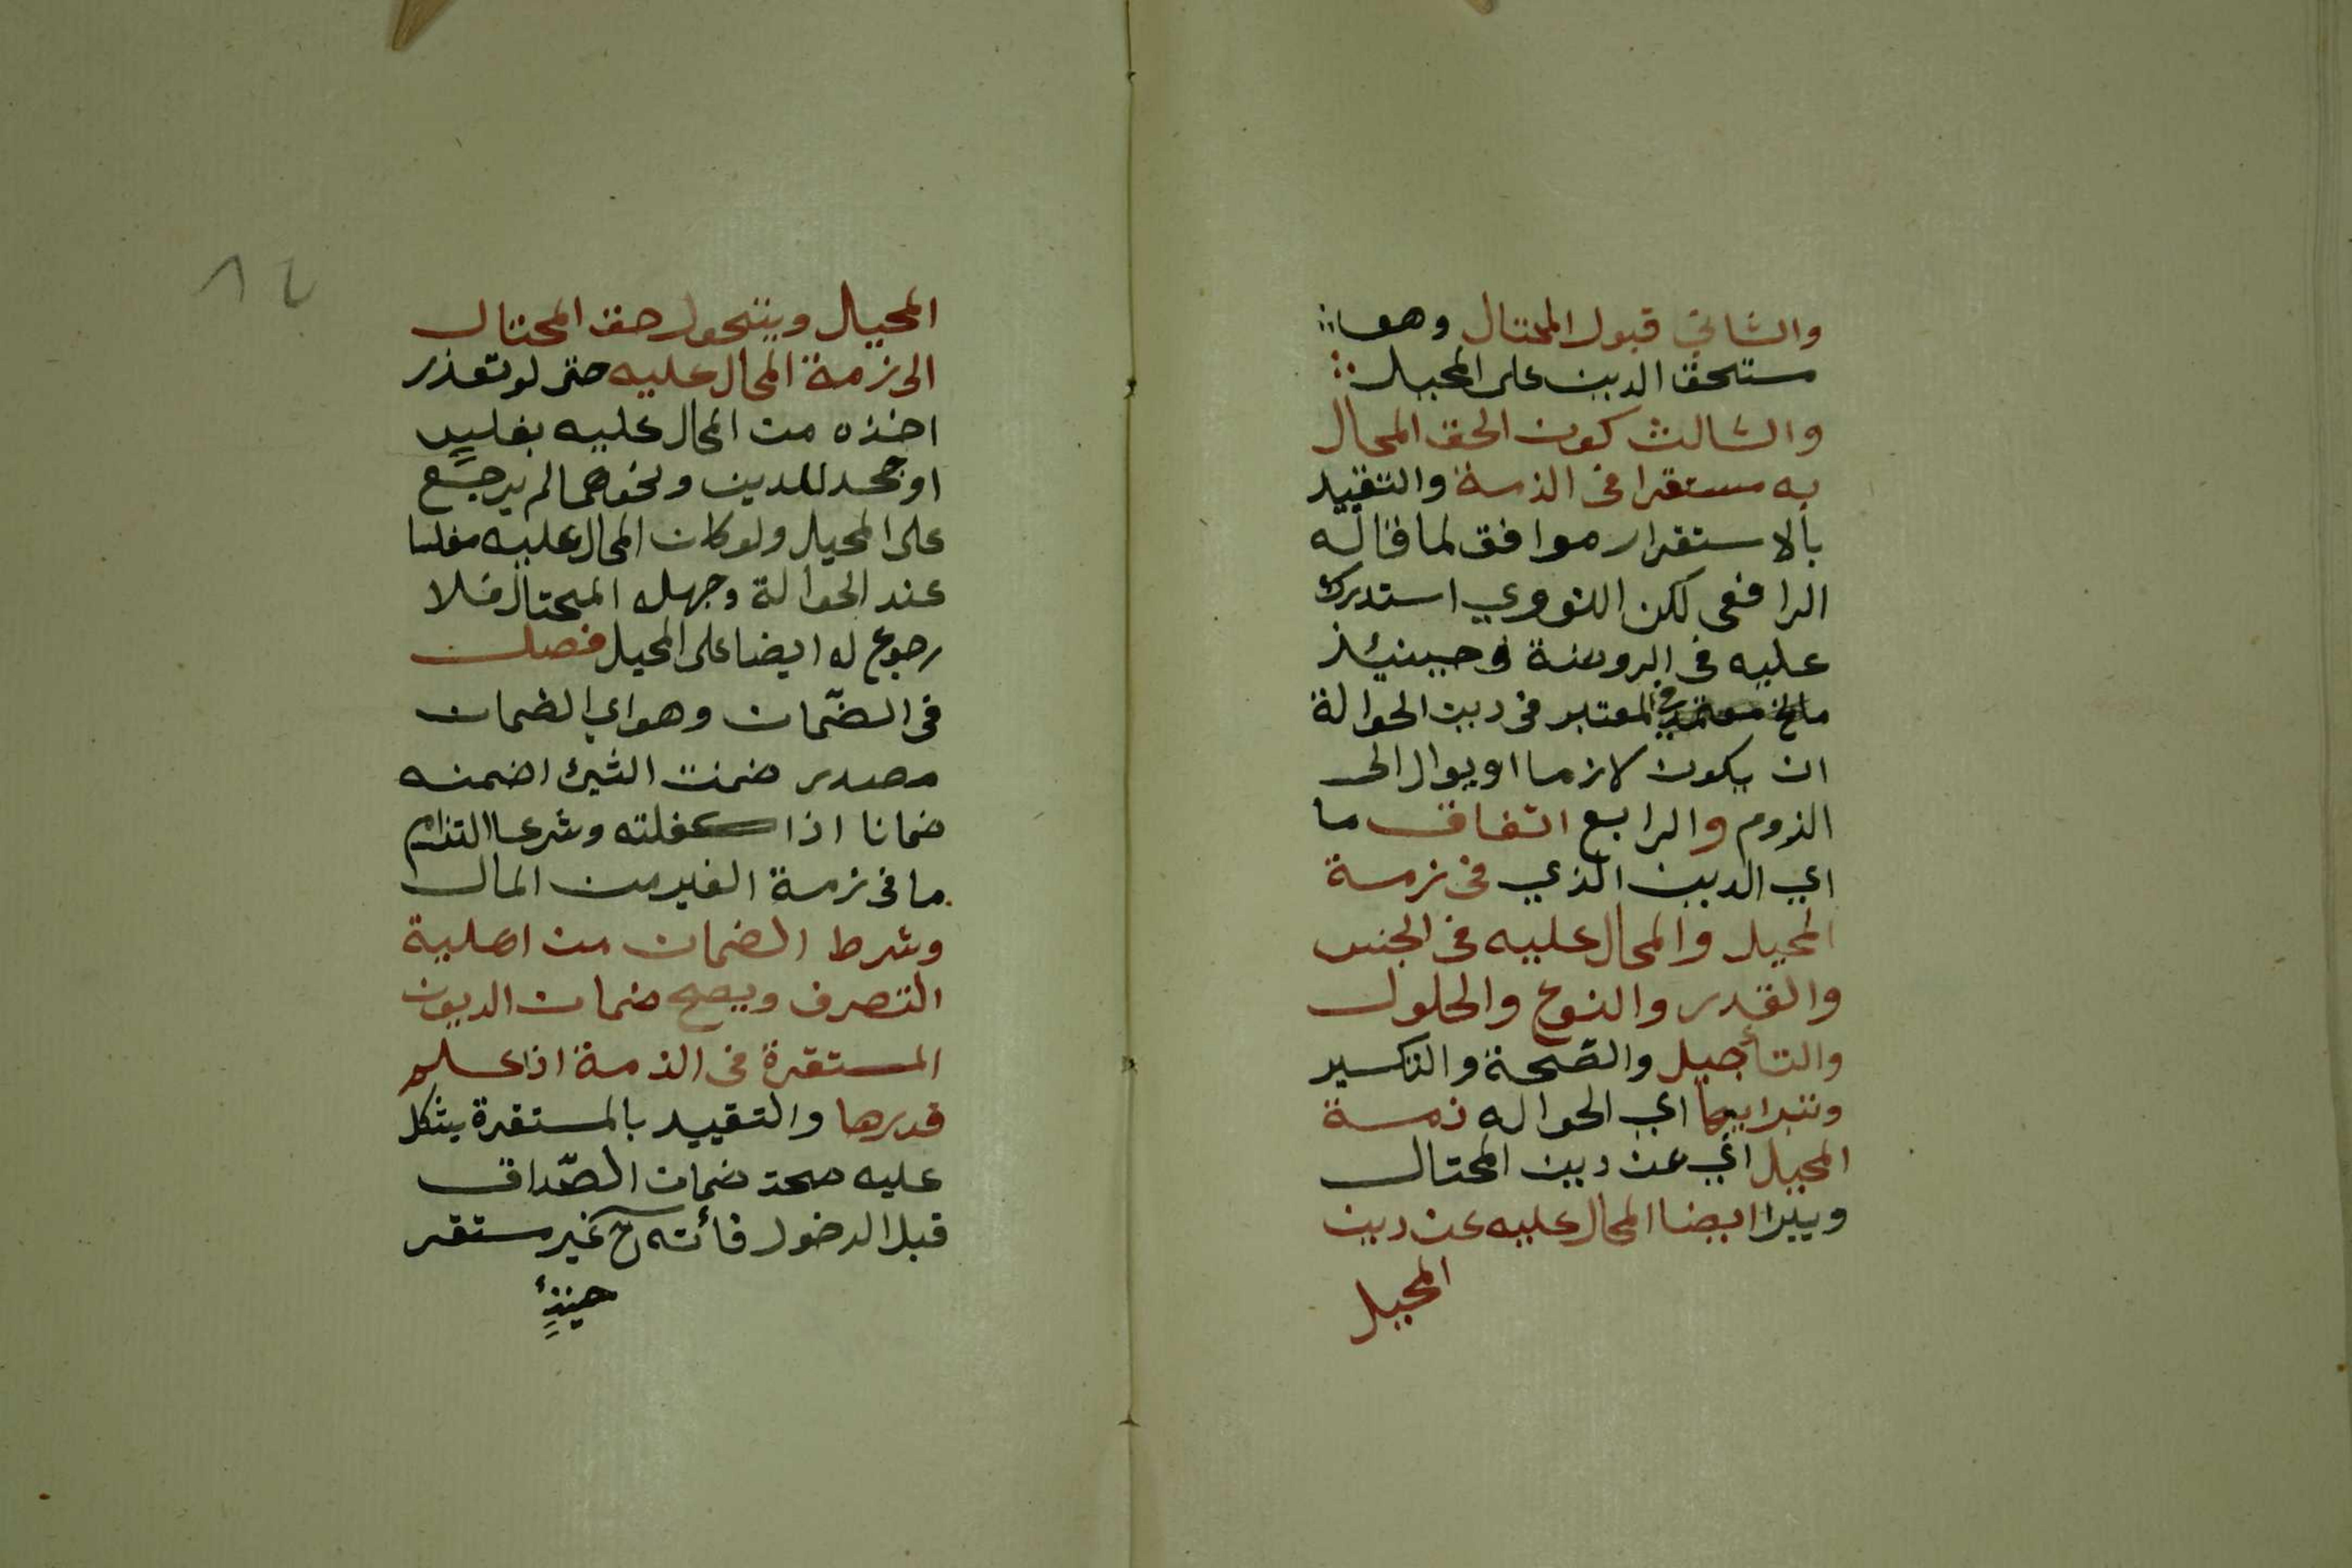 والثاني قبول المحتال وهو
مستحق الدين على المحيل
والثالث كون الحق المحال
به مستقرا فى الذمة والتقييد
بالاستقرار موافق لما قاله
الرافعى لكن النووي استدرك
عليه فى الروضة وحينئذ
المعتبر فى دين الحوالة
ان يكون لازما او يوال الى
الزوم والرابع اتفاق ما
اي الدين الذي فى زمة
المحيل والمحال عليه فى الجنس
والقدر والنوع والحلول
والتأجيل والصّحة والتكسير
وتبرا بها اي الحواله ذمة
المحيل اي عن دين المحتال
ويبرا ايضا المحال عليه عن دين
المحيل
٨٢
المحيال ويتحول حق المحتال
الى زمة المحال عليه حتى لو تعذر
اخذه من المحال عليه بفليس
او جحد للدين ونحوهما لم يرجع
على المحيل ولو كان المحال عليه مفلسا
عند الحوالة وجهله المحتال فلا
رجوع له ايضا على المحيل فصل
فى الضّمان وهو اي الضمان
مصدر ضمنت الشئ اضمنه
ضمانا اذا كفلته وشرعا التزام
ما فى زمة الغير من المال
وشرط الضمان من اهلية
التصرف ويصح ضمان الديون
المستقرة فى الذمة اذا علم
قدرها والتقييد بالمستقرة يشكل
عليه صحة ضمان الصّداق
قبل الدخول فأنه ح غير مستقر
حينئذٍ